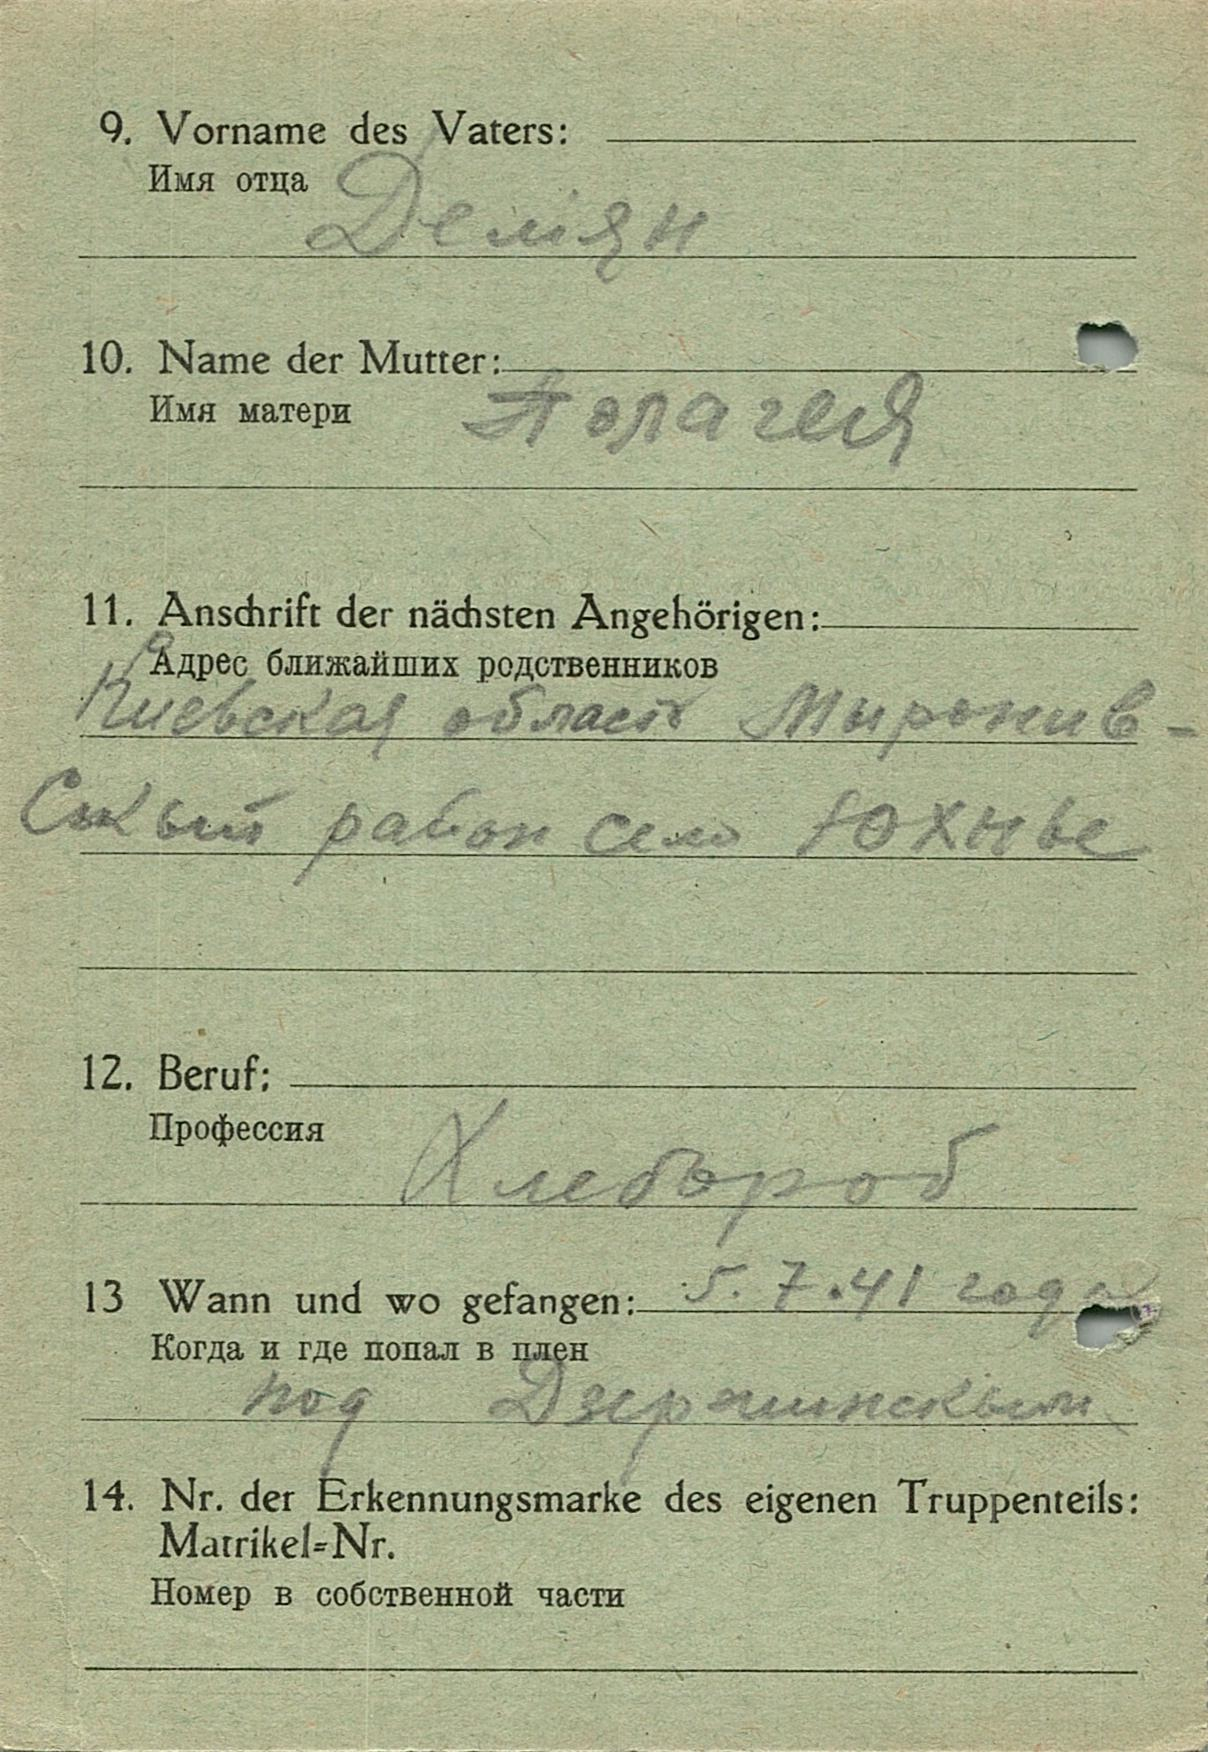 9. Vorname des Vaters:
Имя отца
Демян
10. Name der Mutter:
Имя матери
Полагея
11. Anschrift der nächsten Angehörigen:
Адрес ближайших родственников
Киевская область Мыронив-
ськый район село Юхные
12. Beruf:
Профессия
Хлебороб
13 Wann und wo gefangen: 5.7.41 года
Когда и где попал в плен
под Дзержинскым
14. Nr. der Erkennungsmarke des eigenen Truppenteils:
Matrikel=Nr.
Номер в собственной части